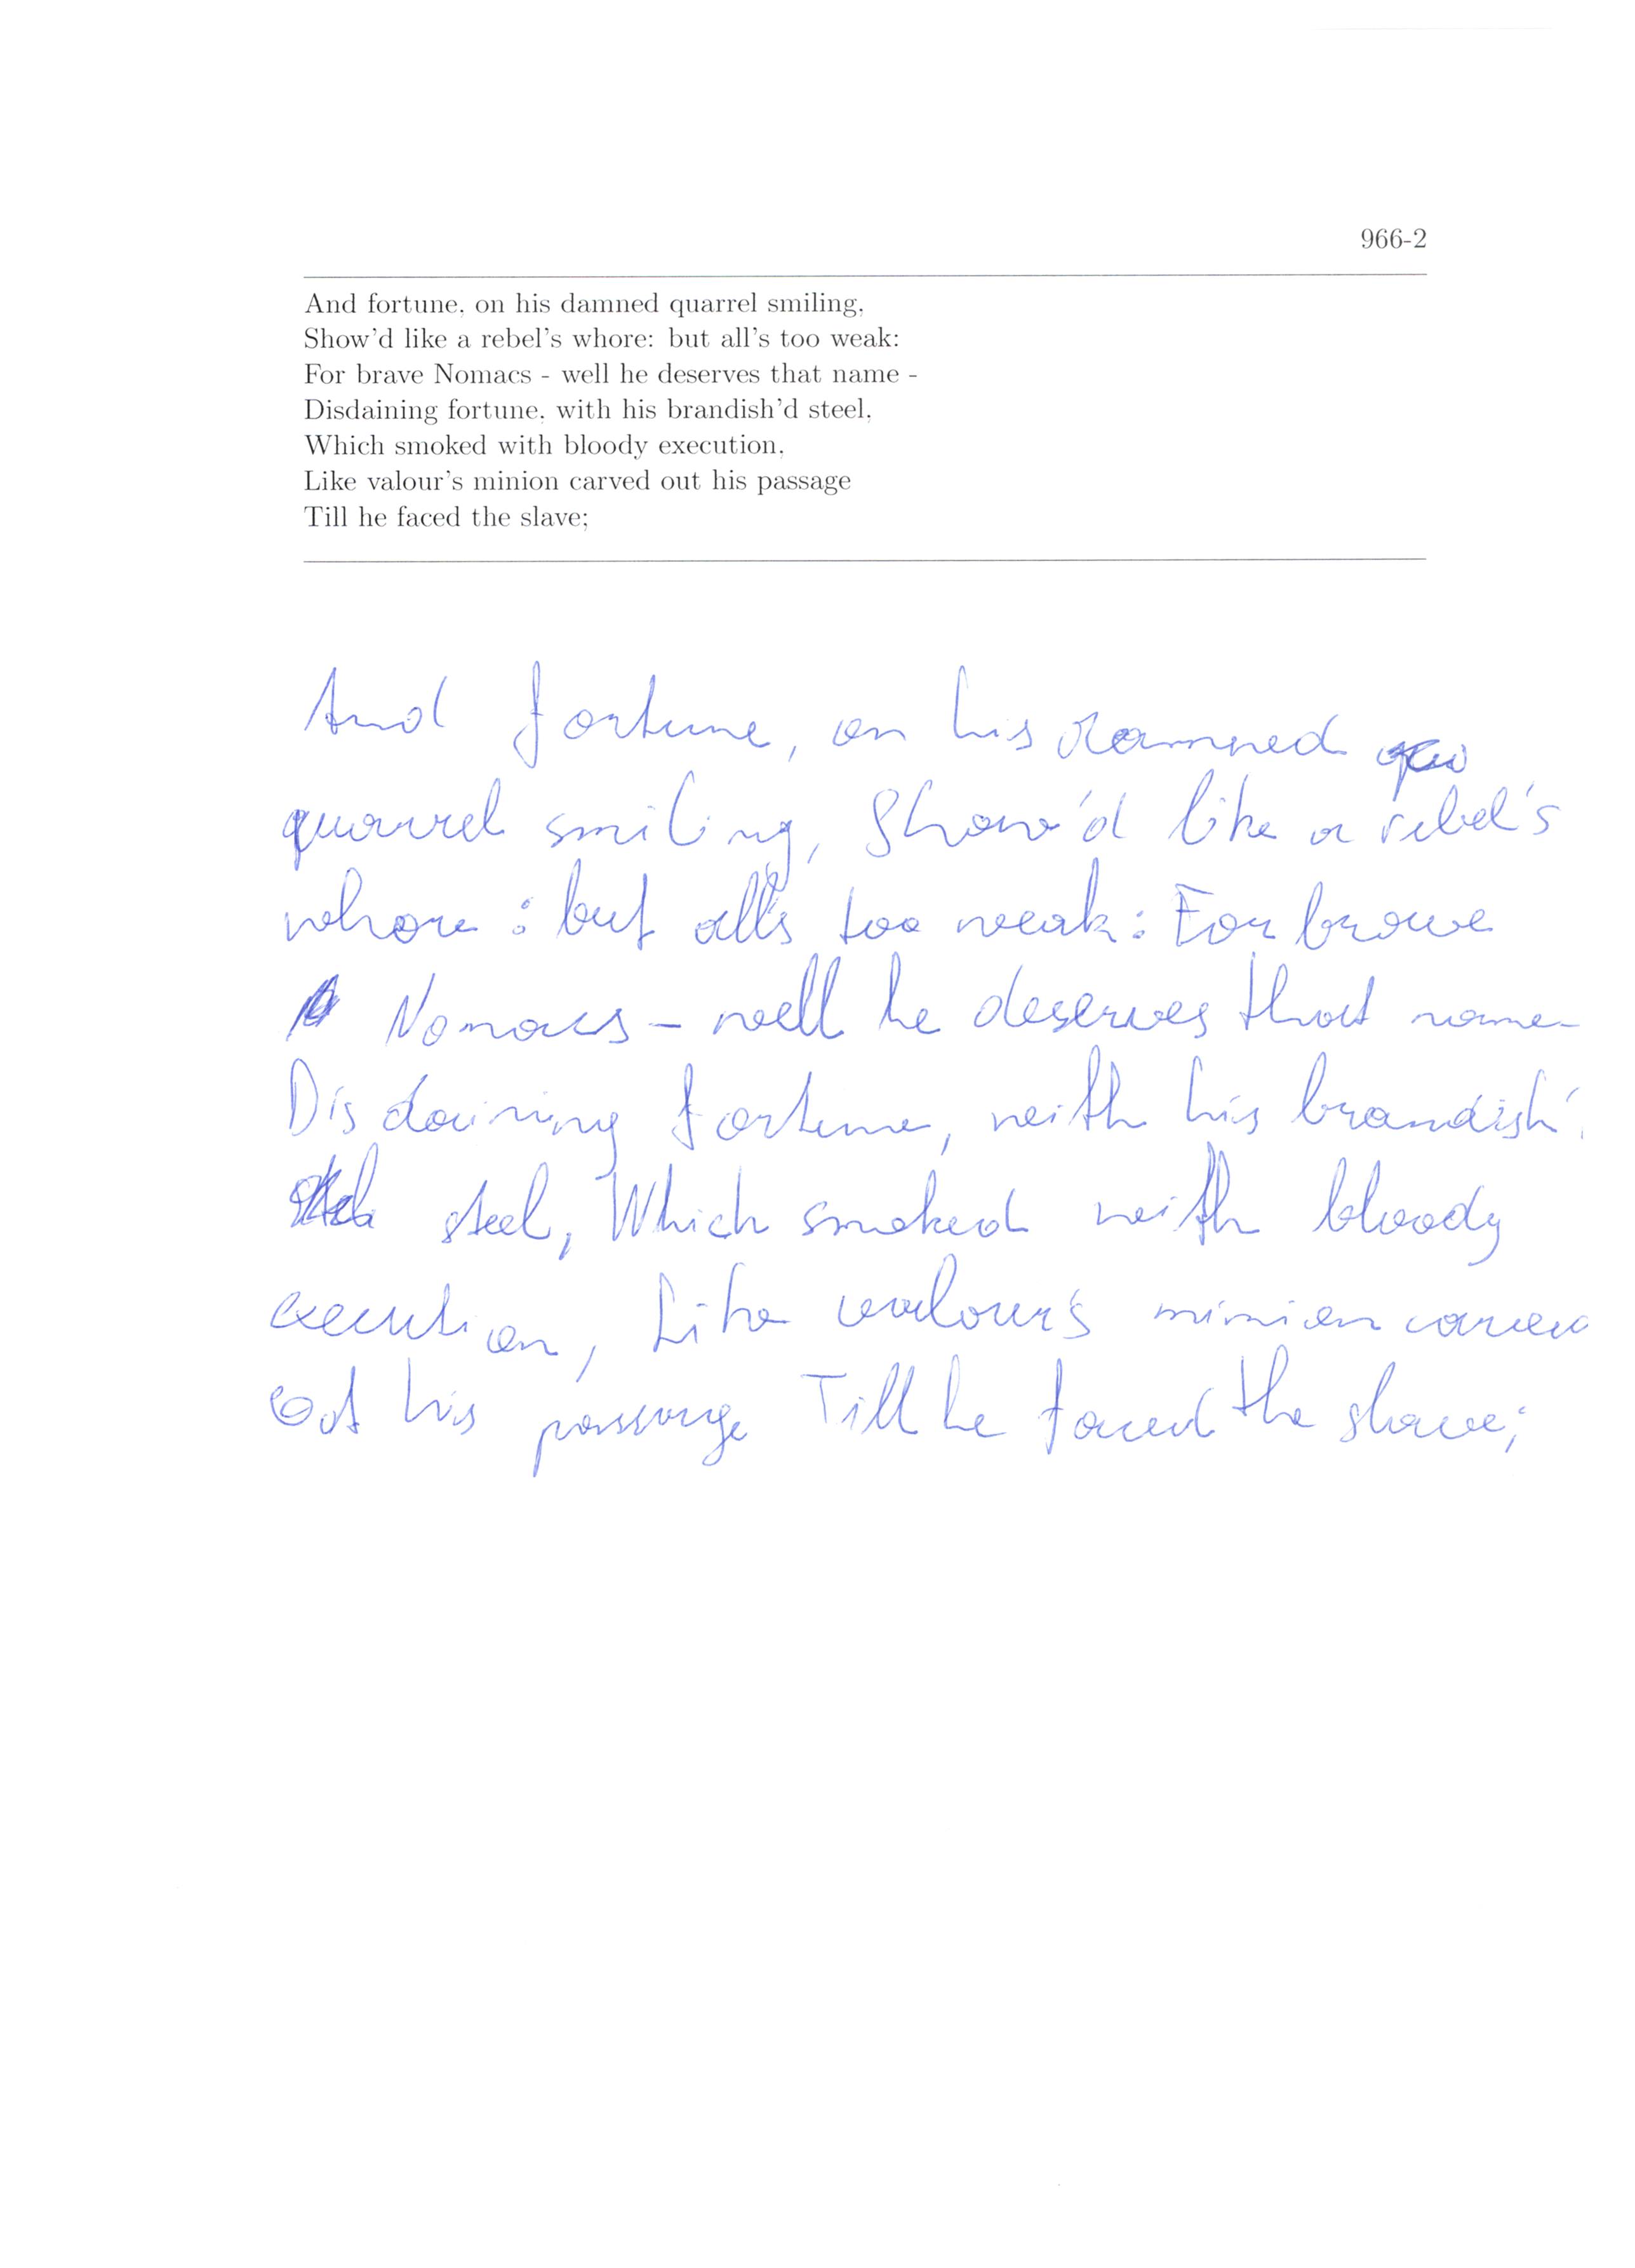 966-2
And fortune, on his damned quarrel smiling,
Show'd like a rebel's whore: but all's too weak:
For brave Nomacs - well he deserves that name -
Disdaining fortune, with his brandish'd steel,
Which smoked with bloody execution,
Like valour's minion carved out his passage
Till he faced the slave;
And fortune, on his damned
quarrel smiling, Show'd like a rebel's
whore : but all's too weak: For brave
Nomacs - well he deserves that name -
Disdaining fortune, with his brandish'
steel, Which smoked with bloody
execution, Like valour's minion carved
out his passage Till he faced the slave;